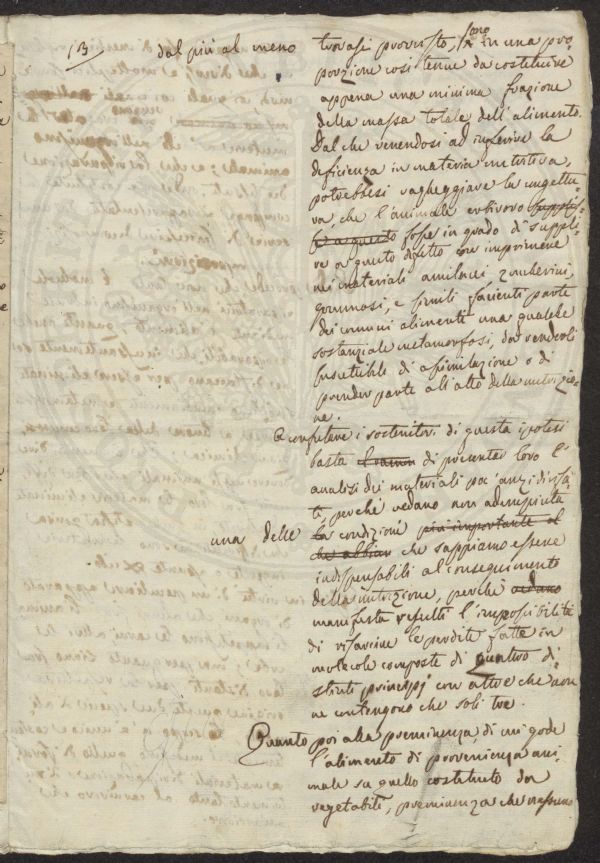 13 dal più al meno
trovasi provvisto, sono in una pro=
porzione così tenue da costituire
appena una minima frazione
della massa totale dell'alimento.
Dal che venendosi ad inferire la
deficienza in materia nutritiva,
potrebbesi vagheggiare la congettu=
ra, che l'animale erbivoro
fosse in grado di suppli=
re a questo difetto con imprimere
nei materiali amilacei zuccherini,
gommosi, e simili facienti parte
dei comuni alimenti una qualche
sostanziale metamorfosi, da renderli
suscettibili di assimilazione o di
prender parte all'atto della nutrizio=
ne.
A confutare i sostenitori di questa ipotesi
basta di presentar loro l'
analisi dei materiali poc'anzi
perché vedano non adempiuta
una delle la condizioni più importante
che abbian che sappiamo essere
indispensabili al conseguimento
della nutrizione, perché vedano
manifesta risulti l'impossibilità
di rifarsi le perdite fatte in
molecole composte di quattro di=
stinti principj con altre che non
ne contengono che soli tre.
Quanto poi alla preminenza, di cui gode
l'alimento di provenienza ani=
male su quello costituito da
vegetabili, preminenza che nessuno